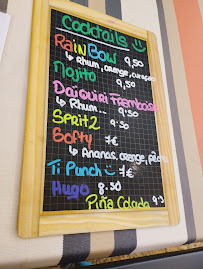 Cocktails
RaiNBOW 9,50
↳ Rhum, orange, curaçao
Mojito 9,50
Daïquiri Framboise
↳ Rhum... 9.50
Spritz 9.50
Softy 7€
↳ Ananas, orange,
Ti Punch 7€
Hugo 8.50
Piña Colada 9.5